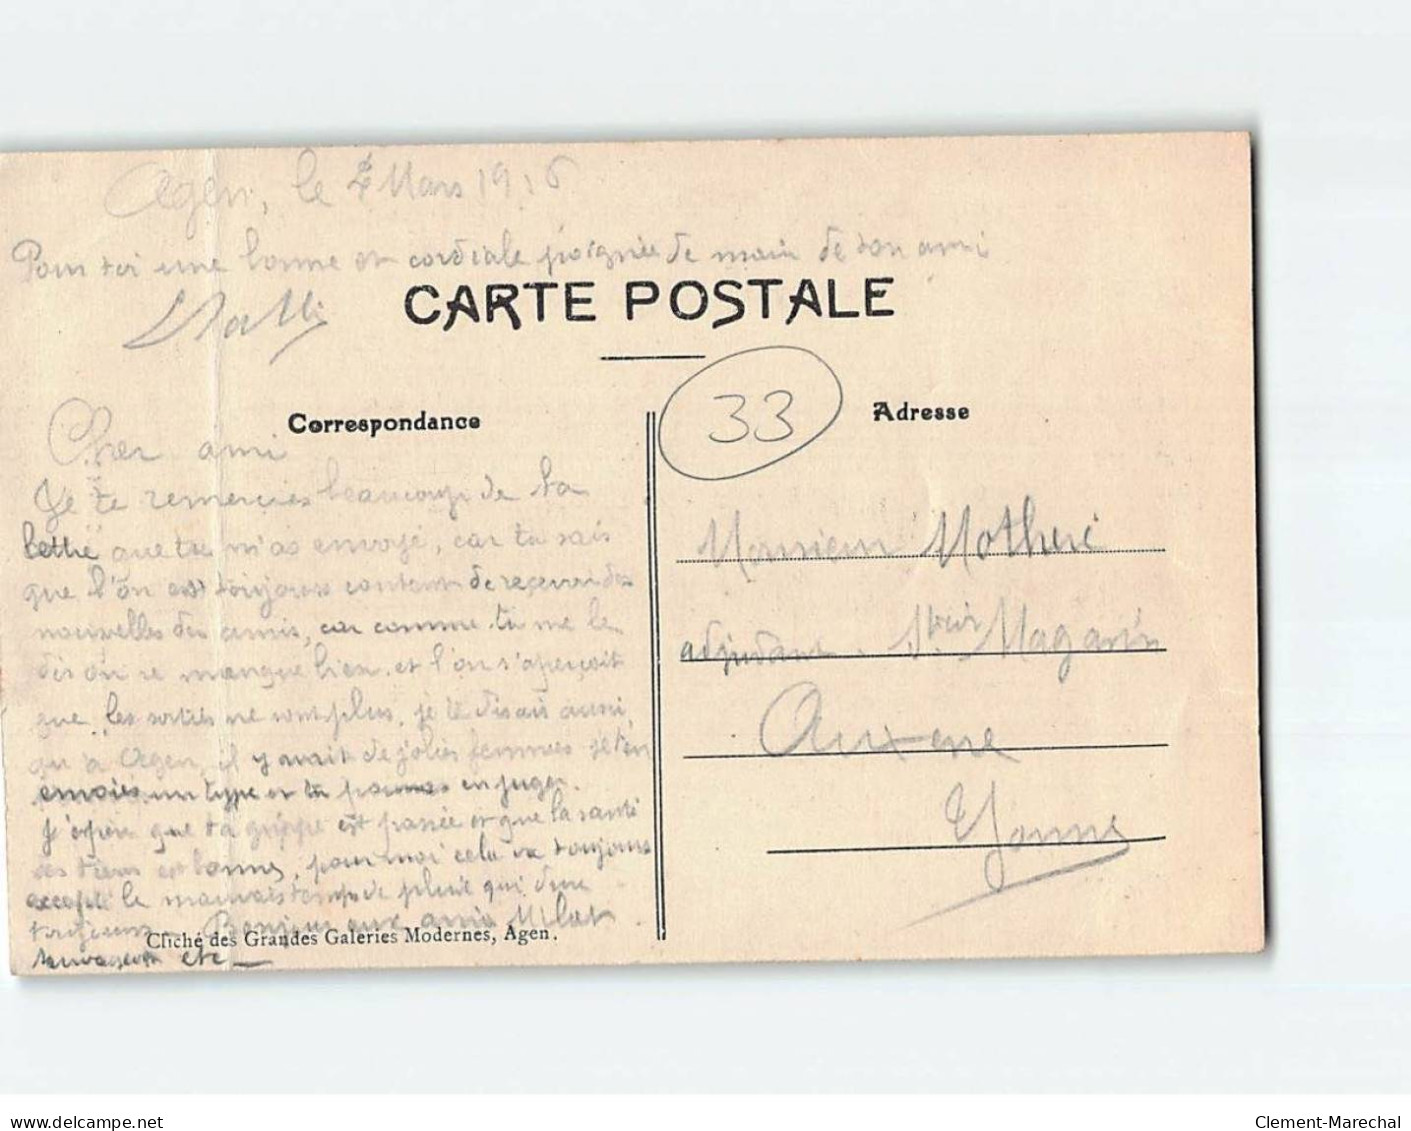 Agen, le 2 Mars 1916
Pour toi une bonne et cordiale poignée de main de ton ami
CARTE POSTALE
33
Correspondance
Adresse
Cher ami
Je te remercies beaucoup de ta
lettre que tu m'as envoyé, car tu sais
que l'on est toujours content de recevoir des
nouvelles des amis, car comme tu me le
dis on se manque bien et l'on s'aperçoit
que les sorties ne sont plus, je te disais aussi,
qu'à Agen, il y avait de jolies femmes je t'en
envoies un type et tu pourras en juger.
J'espère que ta grippe est passée et que la santé
des tiens est bonne, pour moi cela va toujours
excepté le mauvais temps de pluie qui dure
toujours. Bonjour aux amis
etc
Cliché des Grandes Galeries Modernes, Agen.
Monsieur Mothere
adjudant Magasin
Auxerre
Yonne
delcampe.net
Clement-Marechal